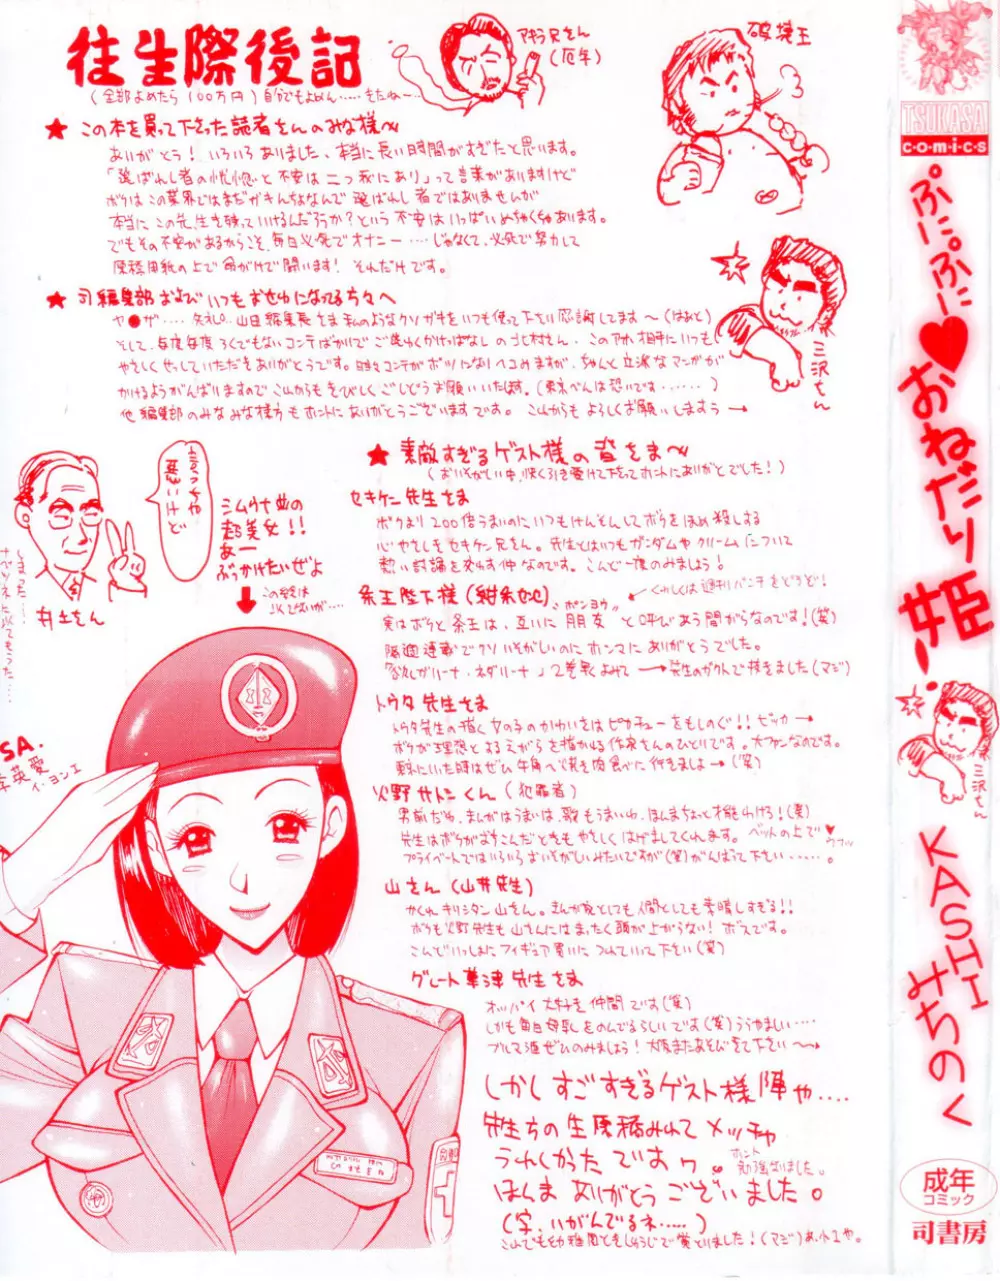 往生際後記
(全部よめたら100万円)自分でもよめん……きたねー…
アキラ兄さん
(厄年)
破壊王
★この本を買って下さった読者さんのみな様へ
ありがとう！いろいろありました、本当に長い時間がすぎたと思います。
「選ばれし者の恍惚と不安は二つ我にあり」って言葉がありますけど
ボクはこの業界ではまだガキんちょなんで選ばれし者ではありませんが
本当にこの先、生き残っていけるんだろうか？という不安はいっぱいめちゃくちゃあります。
でもその不安があるからこそ、毎日必死でオナニー…じゃなくて、必死で努力して
原稿用紙の上で命がけで闘います！それだけです。
★司編集部およびいつもおせわになってる方々へ
ヤ●ザ…… 山田編集長さま私のようなクソガキをいつも使って下さい感謝してます〜(はぁと)
そして、毎度毎度ろくでもないコンテばかりでご迷わくかけっぱなしの北村さん、このアホ相手にいつも
やさしくせっしていただきありがとうです。時々コンテがボツになりヘコみますが、ちゃんと立派なマンガが
かけるようがんばりますのでこれからもきびしくごしどうお願いいたします。(東京べんは恐いです……)
他編集部のみなみな様方もホントにありがとうございますです。これからもよろしくお願いしますぅ→
三沢さん
★素敵すぎるゲスト様の皆さま〜
(おいそがしい中、快く引き受けて下さってホントにありがとでした！)
セキケン先生さま
ボクより200倍うまいのにいつもけんそんしてボクをほめ殺しする
心やさしきセキケン兄さん。先生とはいつもガンダムやクリームについて
熱い討論を交わす仲なのです。こんど一度のみましょう！
くわしくは週刊パンチをどうぞ！
条王陛下様(紺条夜也)
ポンヨウ
実はボクと条王は、互いに"朋友"と呼びあう間がらなのです！(笑)
隔週連載でクソいそがしいのにホンマにありがとうでした。
先生のガクトで抜きました(マジ)
トウタ先生さま
トウタ先生の描く女の子のかわいさはピカチューをもしのぐ！！ピッカー→
ボクが理想とするえがらを描かれる作家さんのひとりです。大ファンなのです。
東京にいた時はぜひ牛角へ焼き肉食べに行きましょー(笑)
火野サトシくん(犯罪者)
男前だわ、まんがはうまいは、歌もうまいわ、ほんまちょっと才能わけろ！(笑)
先生はボクがおちこんだときもやさしくはげましてくれます。ベットの上で♥
ウフッ
プライベートではいろいろおいそがしいみたいですが(笑)がんばって下さい……。
山さん(山井先生)
かくれキリシタン山さん。まんが家としても人間としても素晴しすぎる！！
ボクも火野先生も山さんにはまったく頭が上がらない！ボスです。
こんどいっしょにフィギュア買いにつれていって下さい(笑)
グレート草津先生さま
オッパイ大好き仲間です(笑)
しかも毎日母乳をのんでるらしいです(笑)うらやましい…
プルマで酒ぜひのみましょう！大阪またあそびきて下さい〜
しかしすごすぎるゲスト様陣や….
先生ちの生原稿みれてメッチャ
うれしかったですわ。
ホント
勉強なりました。
ほんまありがとうございました。
(字、いがんでるネ……)
これでも幼稚園ときしゅうじで賞とりました！(マジ)あ、小1や。
言っちゃ
悪いけど
井土さん
しまった…
シムラ並の
超美女！！
あー
ぶっかけたいぜよ
この安は
JSA.
李英愛
イ・ヨンエ
TSUKASA
comics
ぷにぷに♥おねだり姫！
三沢さん
KASHIみちのく
成年
コミック
司書房